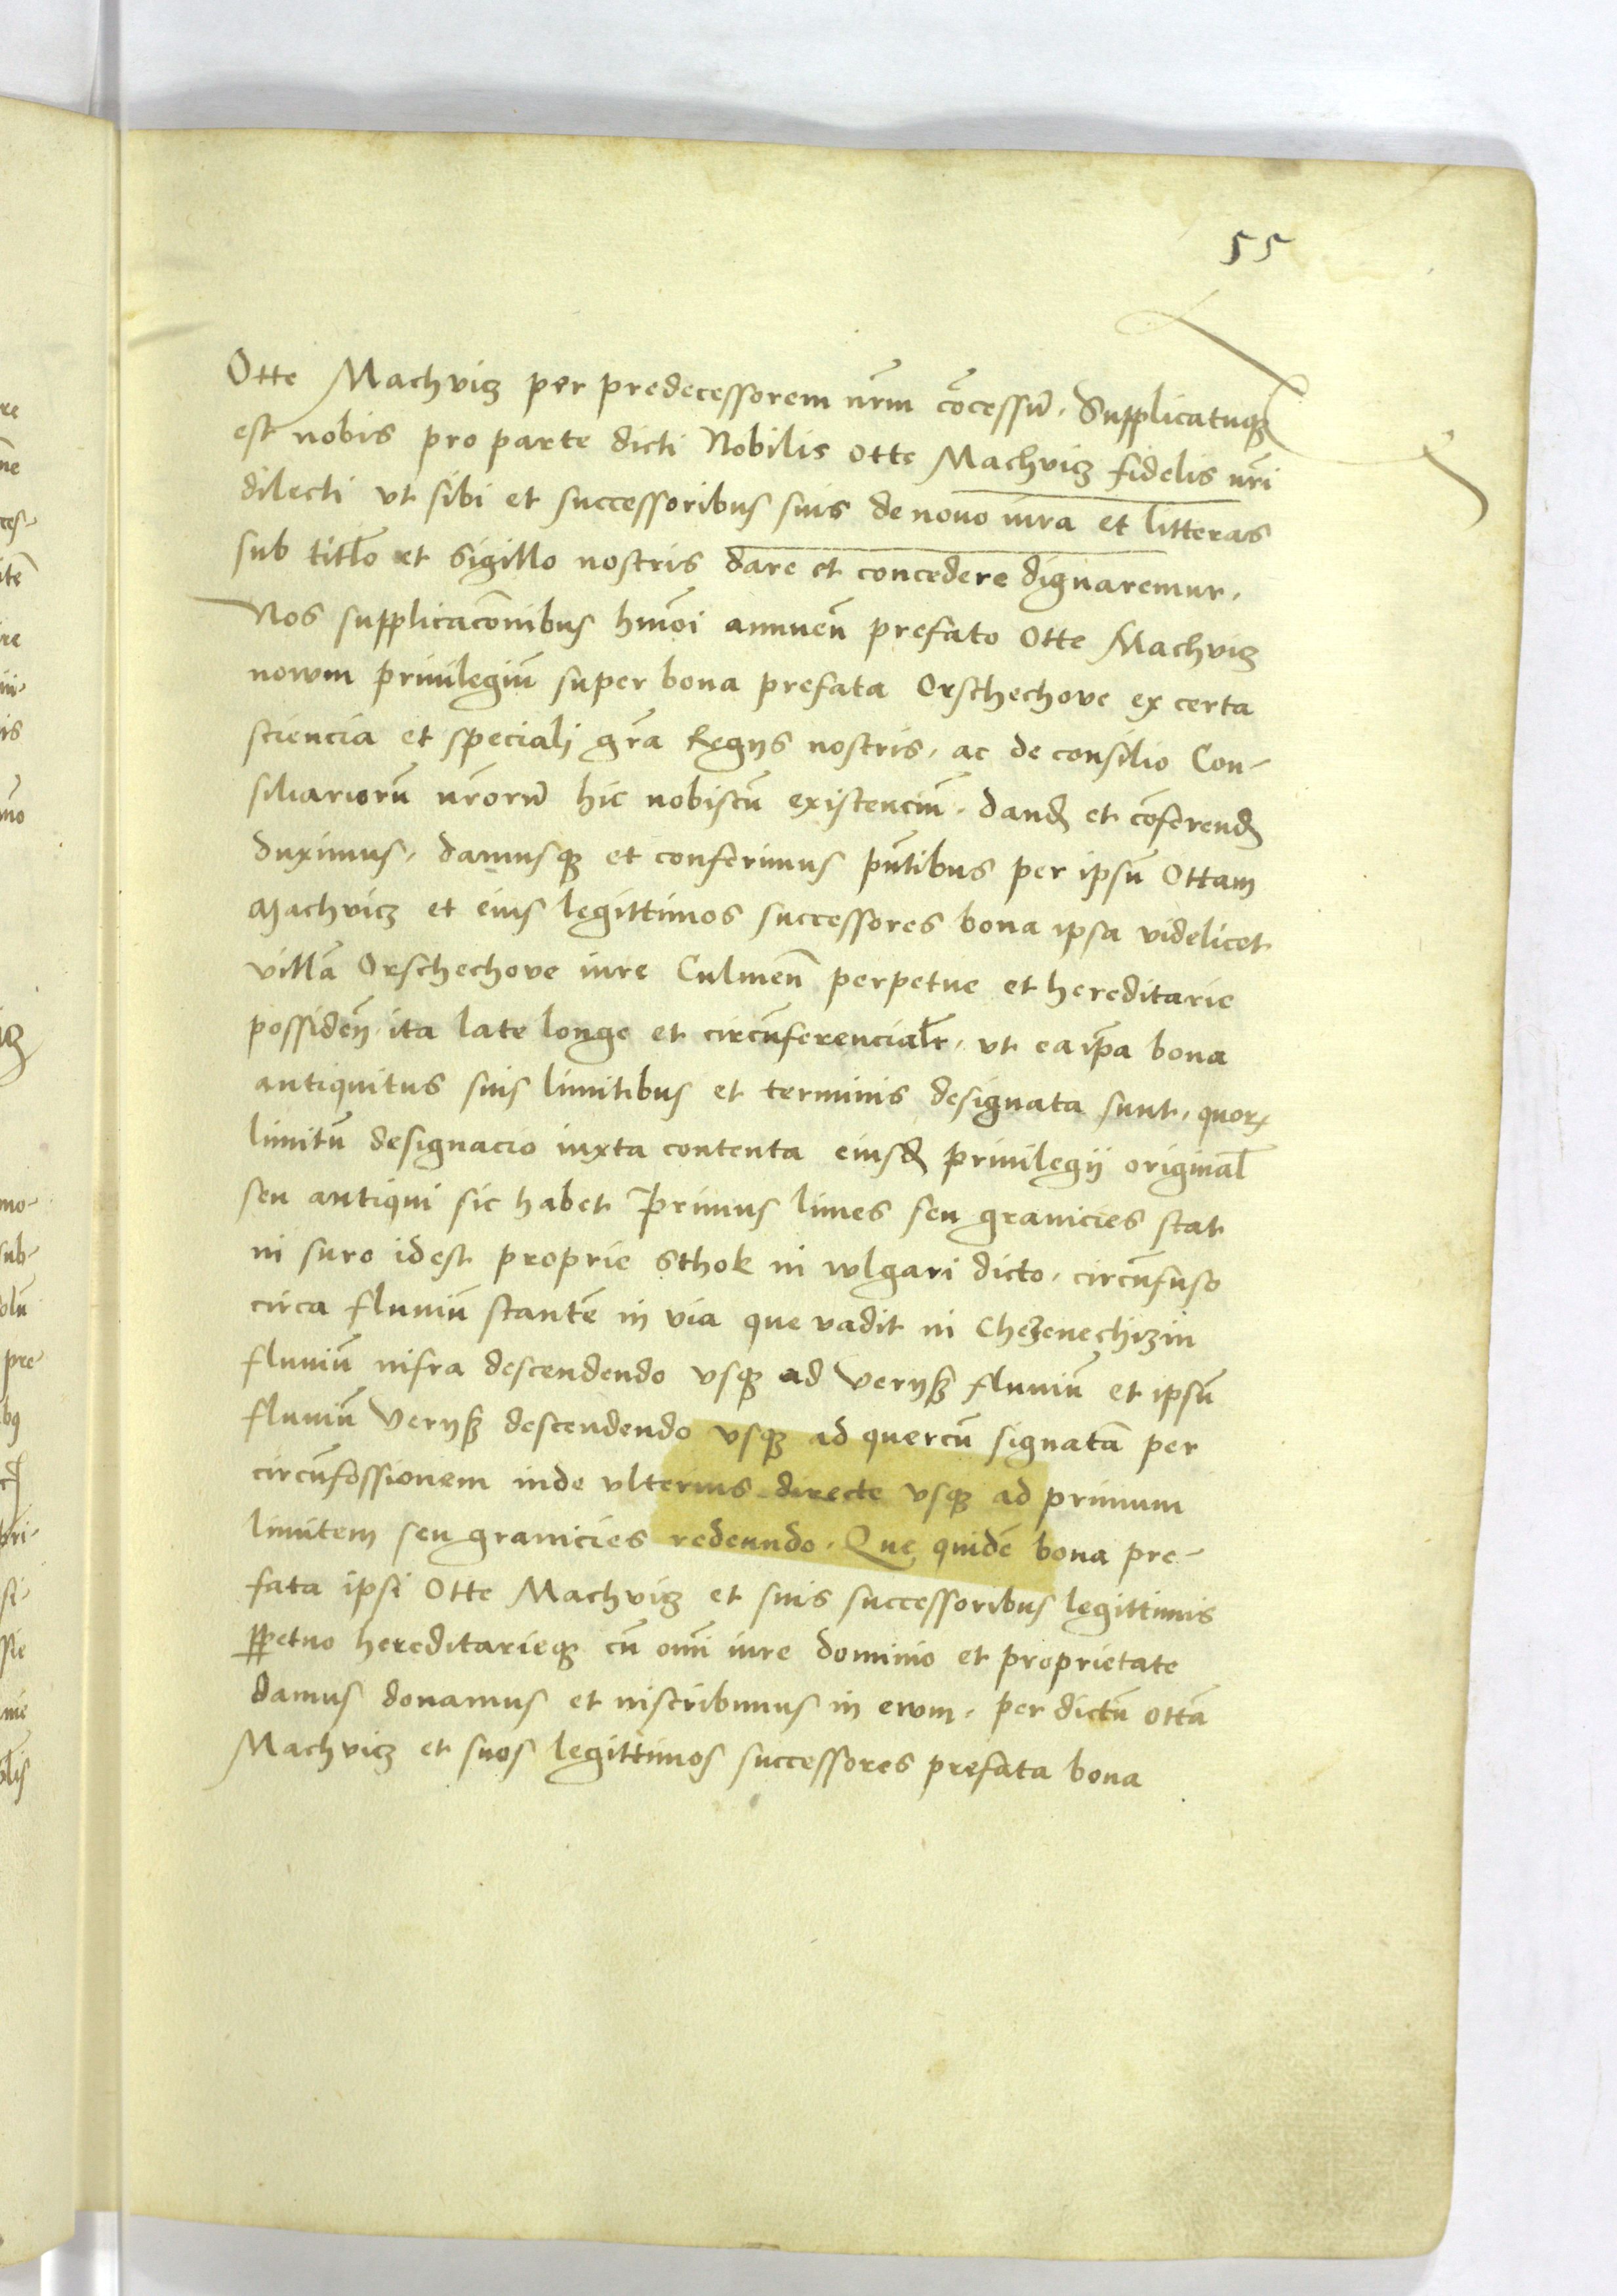 55
Otte Machvicz per predecessorem nr̄m cōcessū. Supplicatūqꝫ
est nobis pro parte dicti Nobilis Otte Machvicz fidelis nr̄i
dilecti vt sibi et successoribus suis de nouo iura et litteras
sub titl̄o et sigillo nostris dare et concedere dignaremur.
Nos supplicac̄onibus hm̄oi annuen̄ prefato Otte Machvicz
nowm priuilegiū super bona prefata Orschechove ex certa
sciencia et speciali gr̄a Regijs nostris. ac de consilio Con-
siliariorū nr̄orū hic nobiscū existenciū. dand̄ et cōferend̄
duximus. damusqꝫ et conferimus pn̄tibus per ipsū Ottam
Machvicz et eius legittimos successores bona ipsa videlicet
villā Orschechove iure Culmen̄ perpetue et hereditarie
possiden̄. ita late longe et circūferencialr̄. vt ea ip̄a bona
antiquitus suis limitibus et terminis designata sunt. quorꝝ
limitū designacio iuxta contenta eiusd̄ priuilegij original̄
seu antiqui sic habet Primus limes seu granicies stat
in suro idest proprie Sthok in wlgari dicto. circūfuso
circa fluuiū stantē in via que vadit in Chezenechizin
fluuiū infra descendendo vsqꝫ ad Verijß fluuiū et ipsū
fluuiū Verijß descendendo vsqꝫ ad quercū signatā per
circūfossionem inde vlterius directe vsqꝫ ad primum
limitem seu granicies redeundo. Que quidē bona pre-
fata ipsi Otte Machvicz et suis successoribus legittimis
ꝑpetuo hereditarieqꝫ cū om̄i iure dominio et proprietate
damus donamus et inscribimus in ewm. per dictū Ottā
Machvicz et suos legittimos successores prefata bona